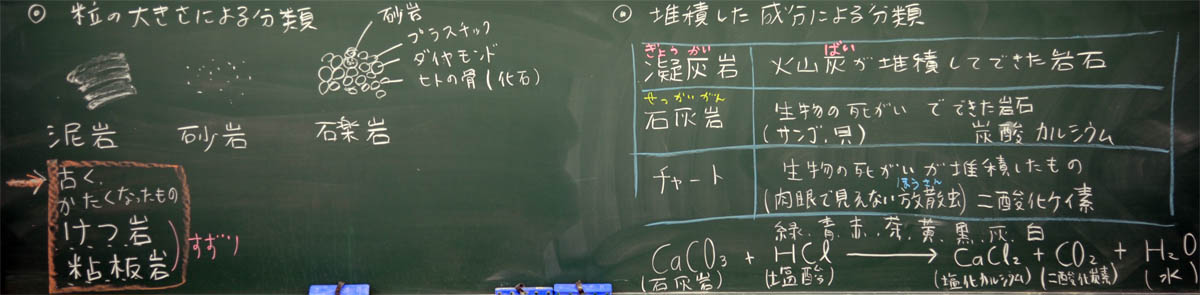 ◎ 粒の大きさによる分類
砂岩
プラスチック
ダイヤモンド
ヒトの骨(化石)
泥岩 砂岩 礫岩
古く、
かたくなったもの
けつ岩
粘板岩
すずり
◎ 堆積した成分による分類
ぎょうかい ばい
凝灰岩 火山灰が堆積してできた岩石
せっかいがん
石灰岩 生物の死がいでできた岩石
(サンゴ、貝) 炭酸カルシウム
チャート 生物の死がいが堆積したもの
ほうさん
(肉眼で見えない放散虫)二酸化ケイ素
緑、青、赤、茶、黄、黒、灰、白
CaCO₃ + HCl ⟶ CaCl₂ + CO₂ + H₂O
(石灰岩) (塩酸) (塩化カルシウム) (二酸化炭素) (水